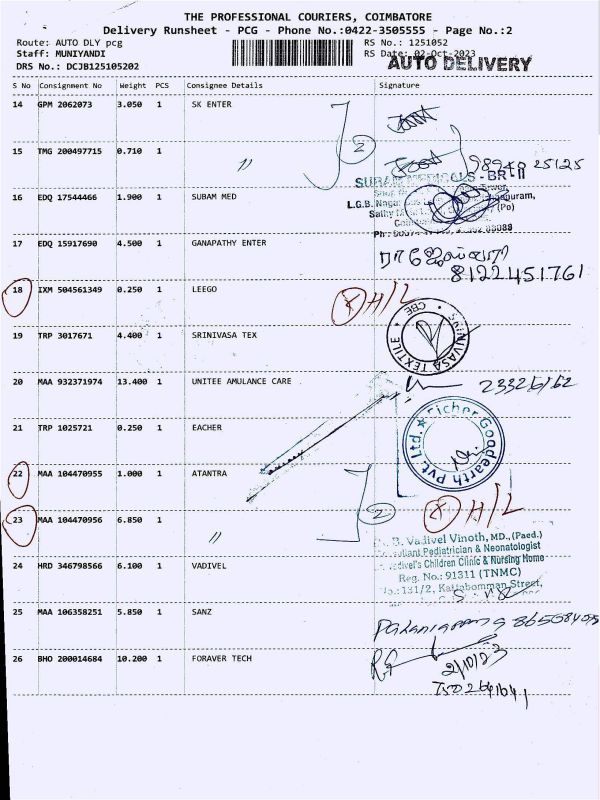 THE PROFESSIONAL COURIERS, COIMBATORE
Delivery Runsheet - PCG - Phone No.:0422-3505555 - Page No.:2
Route: AUTO DLY pcg RS No.: 1251052
Staff: MUNIYANDI RS Date: 02-Oct-2023
DRS No.: DCJB125105202 AUTO DELIVERY
S No Consignment No Weight PCS Consignee Details Signature
14 GPM 2062073 3.050 1 SK ENTER
2
15 TMG 200497715 0.710 1 〃 98940 25125
SUBAM MEDICALS - BR-II
16 EDQ 17544466 1.900 1 SUBAM MED
L.G.B. Nagar
17 EDQ 15917690 4.500 1 GANAPATHY ENTER
8122451761
18 IXM 504561349 0.250 1 LEEGO X H/L
19 TRP 3017671 4.400 1 SRINIVASA TEX SRINIVASA TEXTILE CBE
20 MAA 932371974 13.400 1 UNITEE AMULANCE CARE
21 TRP 1025721 0.250 1 EACHER Richer Goodearth Pvt. Ltd.
22 MAA 104470955 1.000 1 ATANTRA
2 X H/L
23 MAA 104470956 6.850 1 〃
Dr. B. Vadivel Vinoth, MD.,(Paed.)
Consultant Pediatrician & Neonatologist
24 HRD 346798566 6.100 1 VADIVEL Vadivel's Children Clinic & Nursing Home
Reg. No.: 91311 (TNMC)
No.:131/2, Kattabomman Street,
25 MAA 106358251 5.850 1 SANZ
26 BHO 200014684 10.200 1 FORAVER TECH
2/10/23